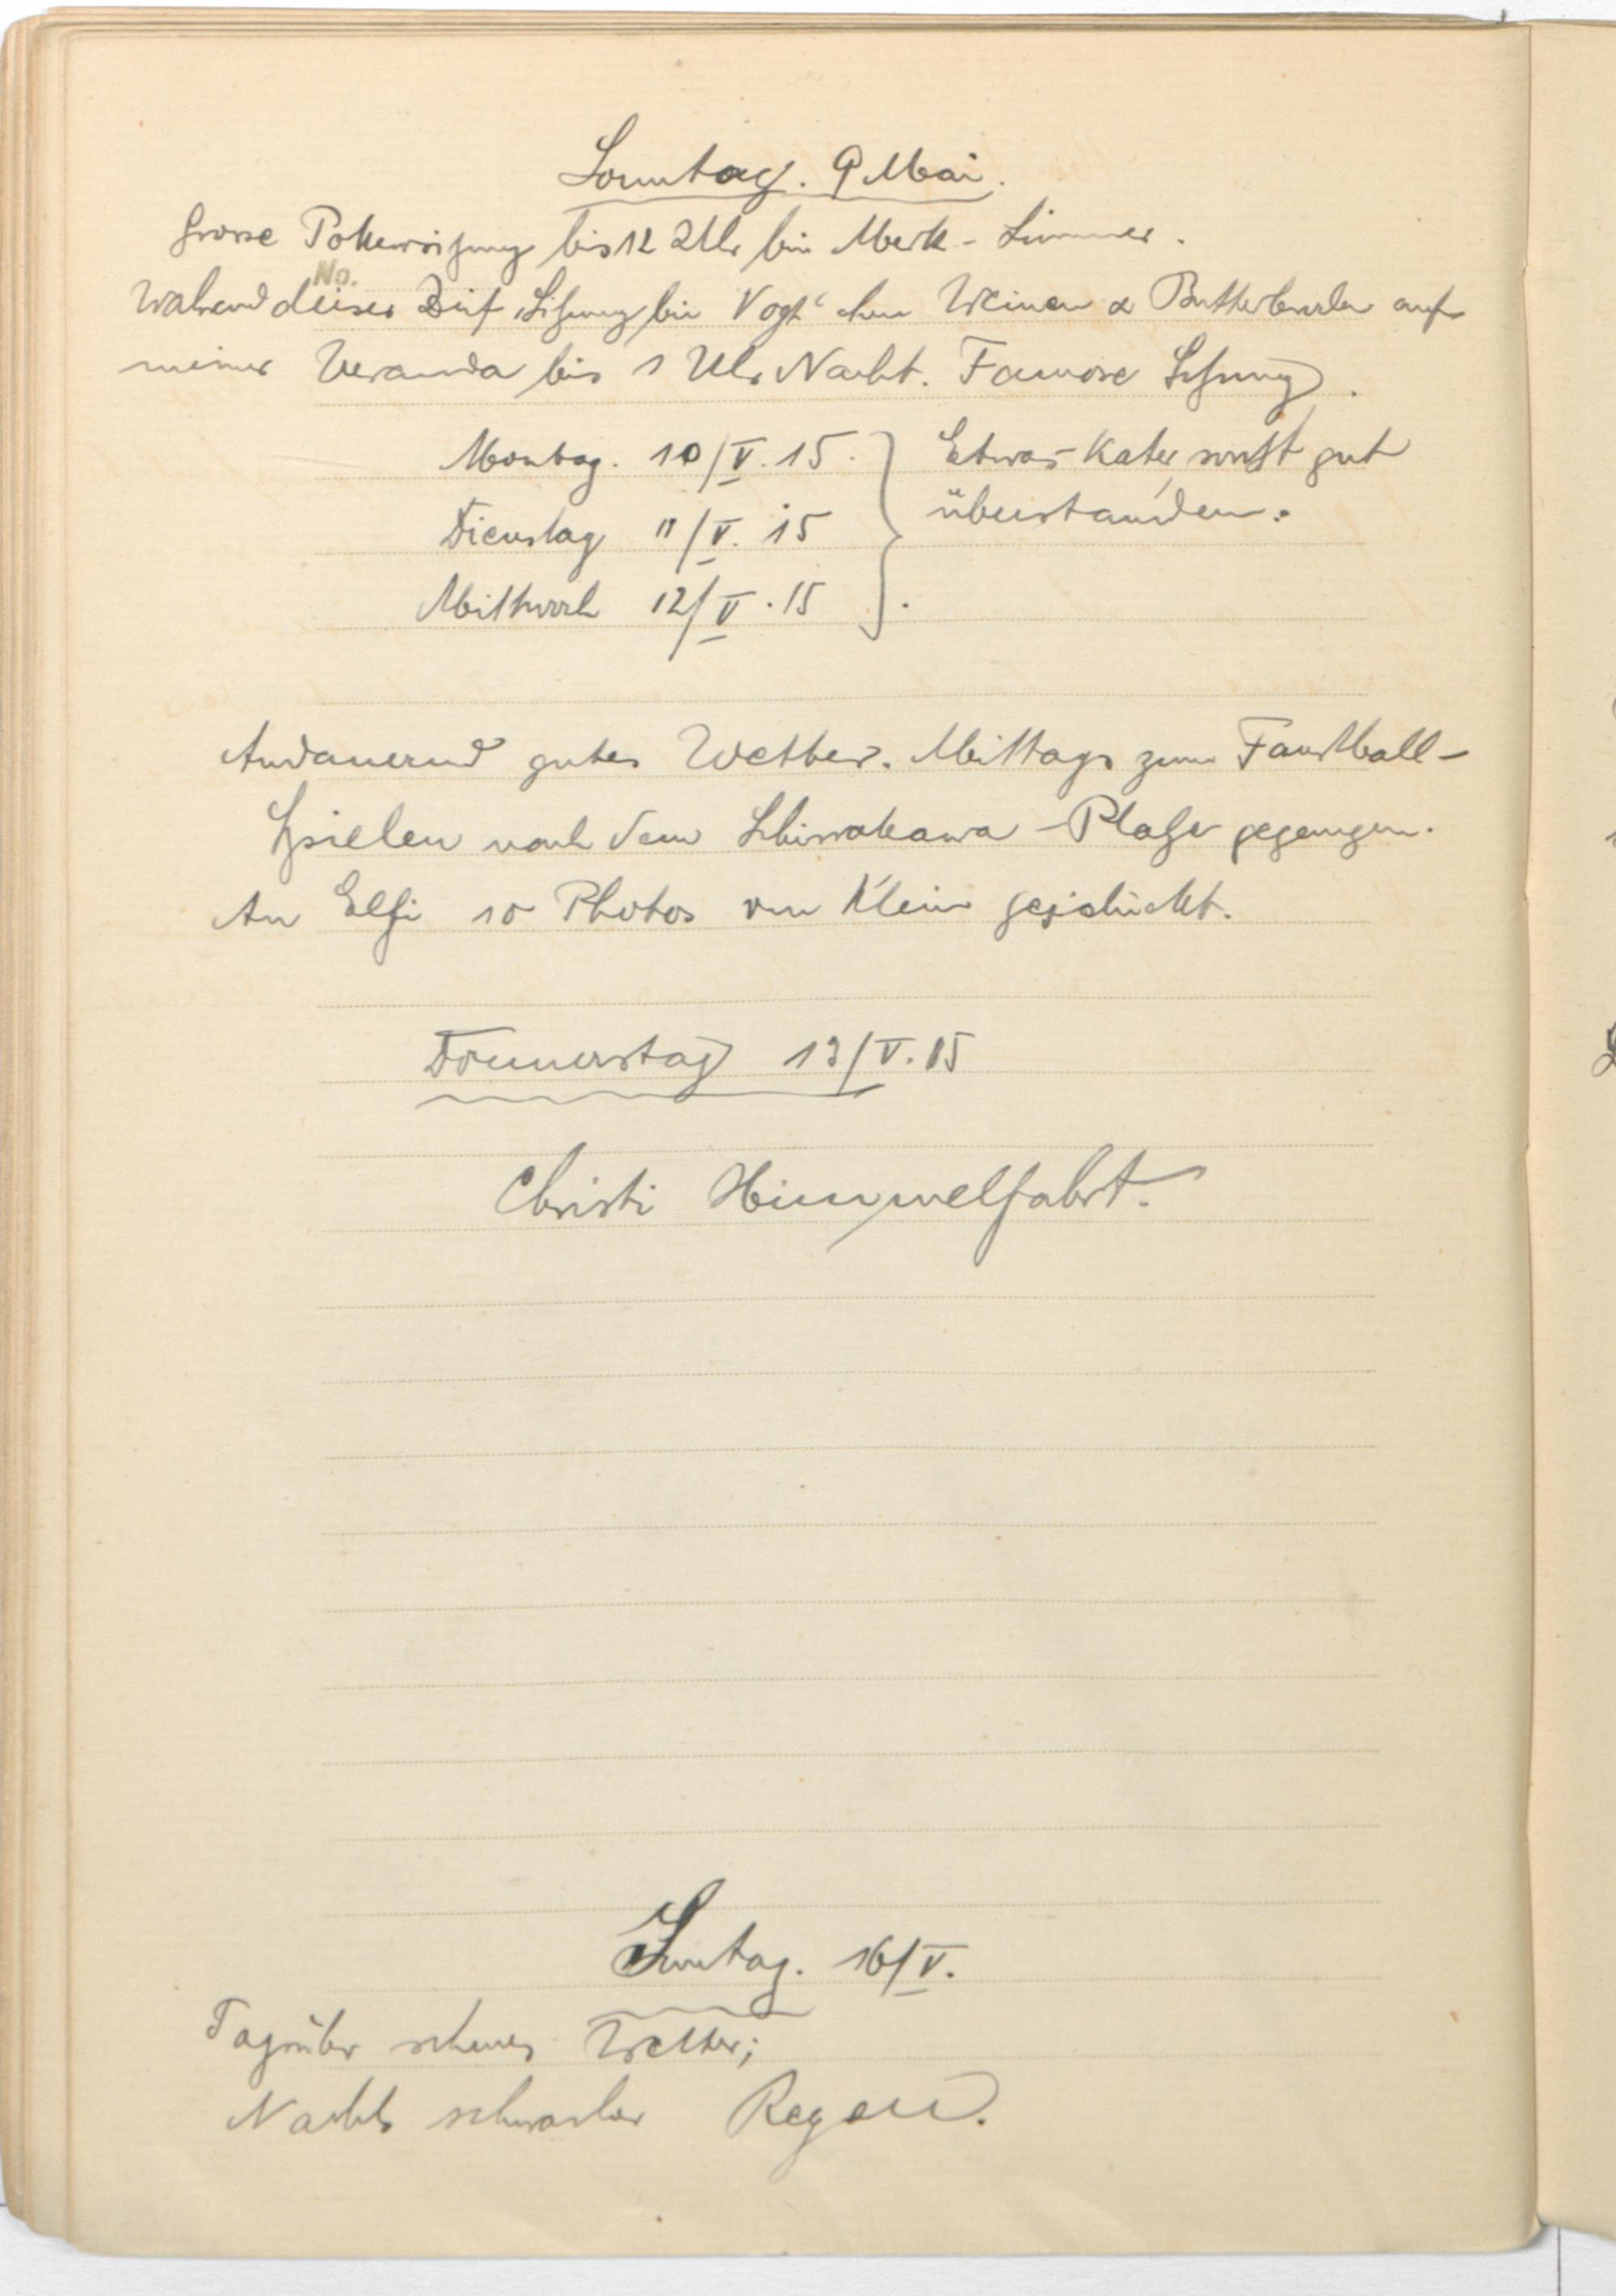 Sonntag. 9 Mai.
Grosse Pokersitzung bis 12 Uhr bei Merk-Zimmer.
No.
Während dieser Sitzung bei Vogt Weinen & Butterbroden auf
meiner Veranda bis 1 Uhr Nacht. Famose Sitzung.
Montag. 10/V.15. } Etwas Kater, sonst gut
Dienstag 11/V.15 überstanden.
Mittwoch 12/V.15
Andauernd gutes Wetter. Mittags zum Faustball-
spielen nach dem Schirrakawa-Platze gegangen.
An Elfi 10 Photos von Klein geschickt.
Donnerstag 13/V.15
Christi Himmelfahrt.
Sonntag. 16/V.
Tagsüber schönes Wetter;
Nachts schwacher Regen.